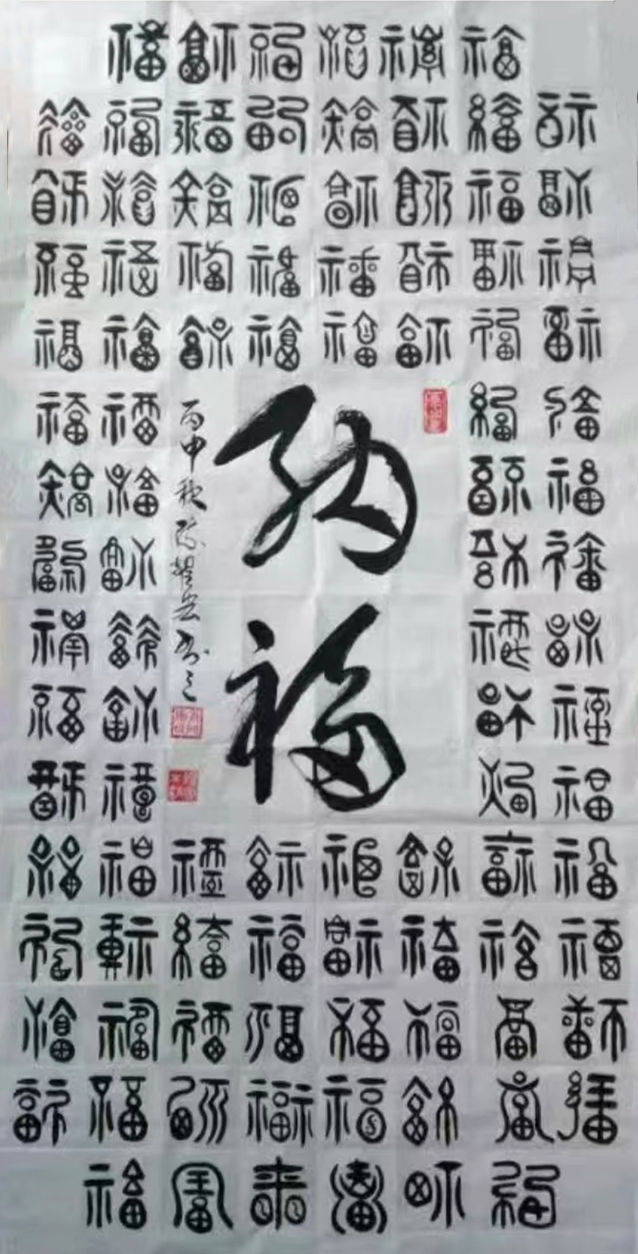 福福福福福福
福福福福福福福福
福福福福福福福福
福福福福福福福福
福福福福福福福福
福福福福
福福福福
福福福福
福福福福
福福福福
福福福福
福福福福福福福福
福福福福福福福福
福福福福福福福福
福福福福福福福福
福福福福福福
纳福
丙申秋陈书之